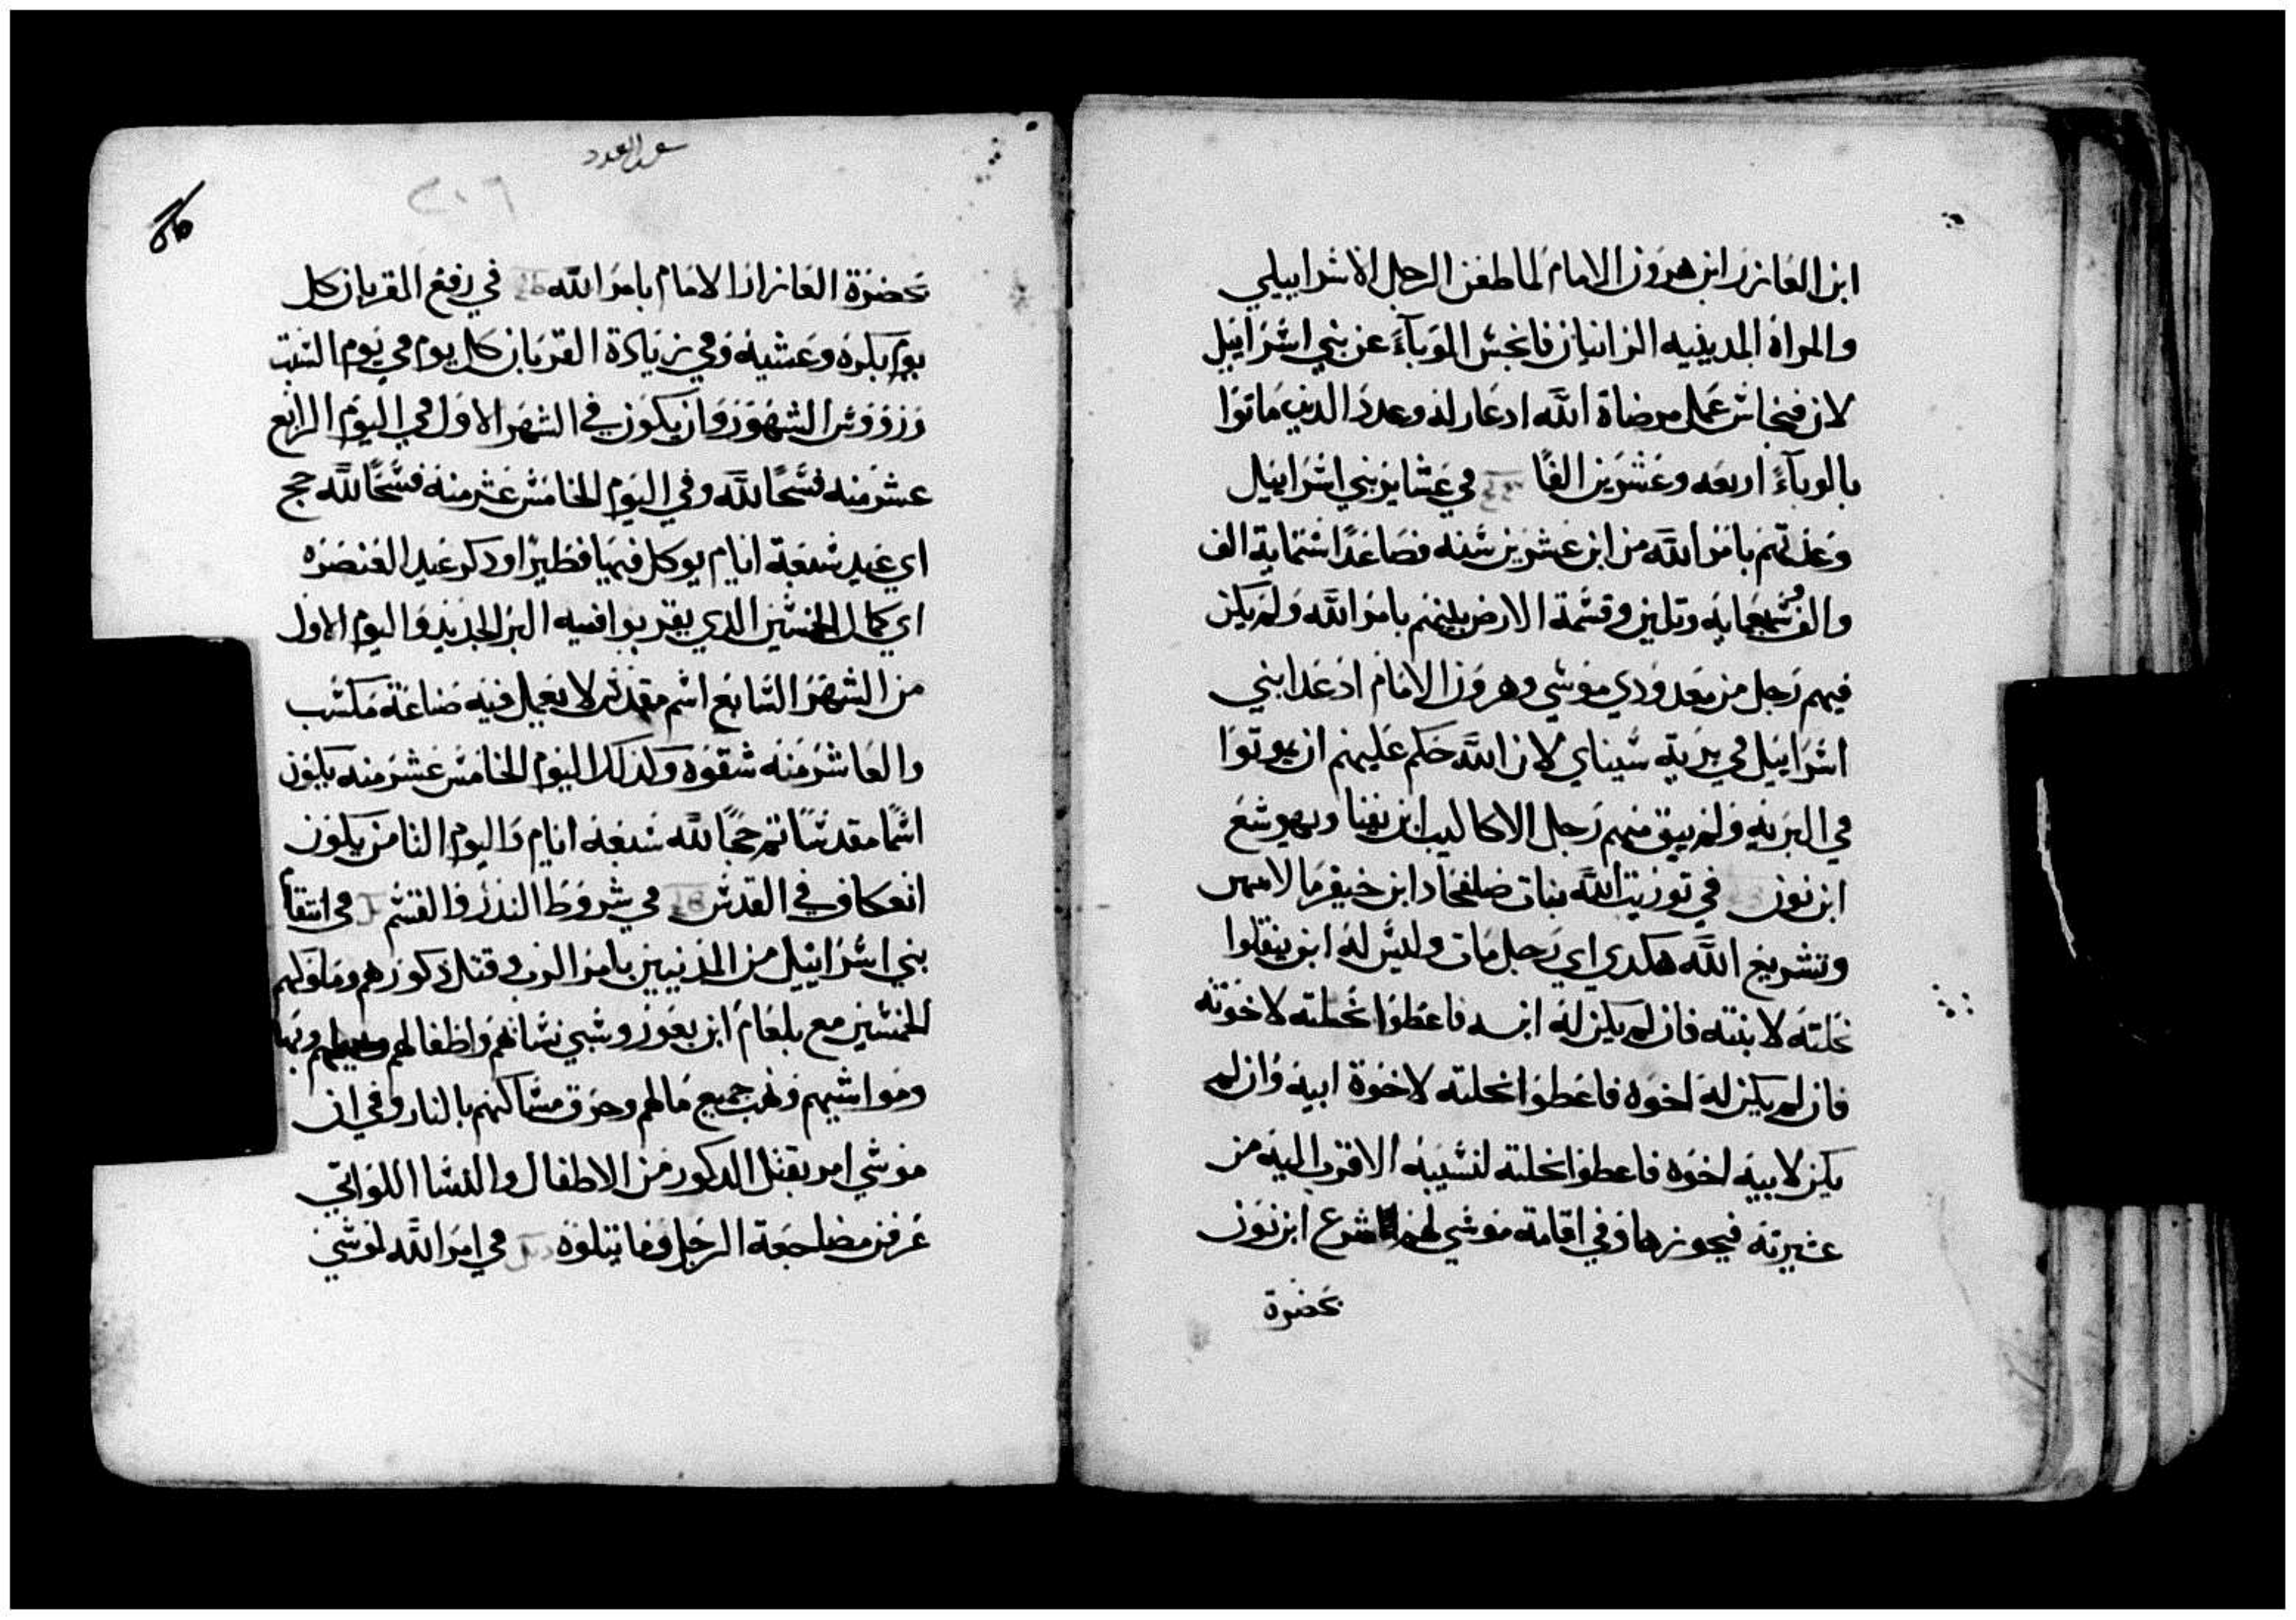 ابن العازر ابن هرون الامام لما طعن الرجل الاسراييلي
والمراة المدينيه الزانيان فانحبس الوبآء عن بني اسراييل
لان فينحاس عمل مرضاة الله اذ غار له وعدد الدين ماتوا
بالوبآء اربعه وعشرين الفًا في عشاير بني اسراييل
وعدتهم بامر الله من ابن عشرين سنه فصاعدًا ستماية الف
والف وسبعمايه وتلتين وقسمة الارض بينهم بامر الله ولم يكن
فيهم رجل من معدودي موسي وهرون الامام اذ عدا بني
اسراييل في برية سيناي لان الله حكم عليهم ان يموتوا
في البريه ولم يبق منهم رجل الا كاليب ابن يفنا ويهوشع
ابن نون في توريت الله بنات صلفحاد ابن حيفر مال ابيهن
وتشريع الله هكدي اي رجل مات وليس له ابن ينقلوا
نحلته لابنته فان لم يكن له ابنه فاعطوا نحلته لاخوته
فان لم يكن له اخوه فاعطوا نحلته لاخوة ابيه وان لم
يكن لابيه اخوه فاعطوا نحلته لنسيبه الاقرب اليه من
عشيرته فيحوزها وفي اقامة موسي ليهوشوع ابن نون
بحضرة
سفر العدد
٢٠٦
بحضرة العازار الامام بامر الله في رفع القربان كل
يوم بكره وعشيه وفي زيادة القربان كل يوم في يوم السبت
وروؤس الشهور وان يكون في الشهر الاول في اليوم الرابع
عشر منه فسحًا لله وفي اليوم الخامس عشر منه فسحًا لله حج
اي عيد سبعة ايام يوكل فيها فطيرًا ودكر عيد العنصره
اي كمال الخمسين الدي يقربوا فيه البر الجديد واليوم الاول
من الشهر السابع اسم مقدس لا يعمل فيه صناعة مكسب
والعاشر منه شقوه وكذلك اليوم الخامس عشر منه يكون
اسمًا مقدسًا تم حجًا لله سبعه ايام واليوم التامن يكون
انعكاف في القدس في شروط الندر والقسم في انتقام
بني اسراييل من المدنيين بامر الرب وقتل دكورهم وملوكهم
الخمسين مع بلعام ابن بعور وسبي نساهم واطفالهم وبهايمهم
ومواشيهم ونهب جميع مالهم وحرق مساكنهم بالنار وفي ان
موسي امر بقتل الدكور من الاطفال والنسا اللواتي
عرفن مضاجعة الرجل وما يتلوه في امر الله لموسي